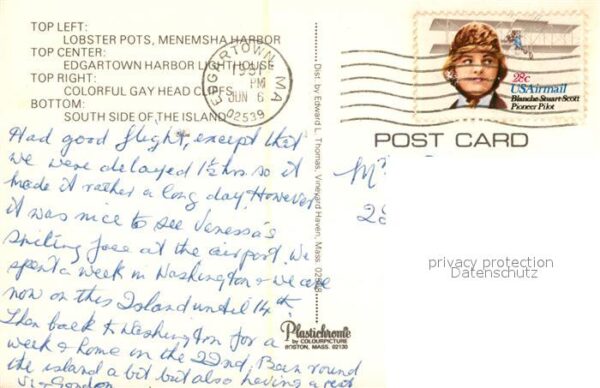 TOP LEFT:
LOBSTER POTS, MENEMSHA HARBOR
TOP CENTER:
EDGARTOWN HARBOR LIGHTHOUSE
TOP RIGHT:
COLORFUL GAY HEAD CLIFFS
BOTTOM:
SOUTH SIDE OF THE ISLAND
EDGARTOWN, MA
PM
JUN 6
02539
28c
USAirmail
Blanche Stuart Scott
Pioneer Pilot
POST CARD
Dist. by Edward L. Thomas, Vineyard Haven, Mass. 02568
Had good flight, except that
we were delayed 1½ hrs. so it
made it rather a long day. However
it was nice to see Vanessa's
smiling face at the airport. We
spent a week in Washington & we are
now on this Island until 14th.
Then back to Washington for a
week & home on the 22nd. Been round
the island a bit but also having a rest
Vi & Gordon
M
28
privacy protection
Datenschutz
Plastichrome
by COLOURPICTURE
BOSTON, MASS. 02130